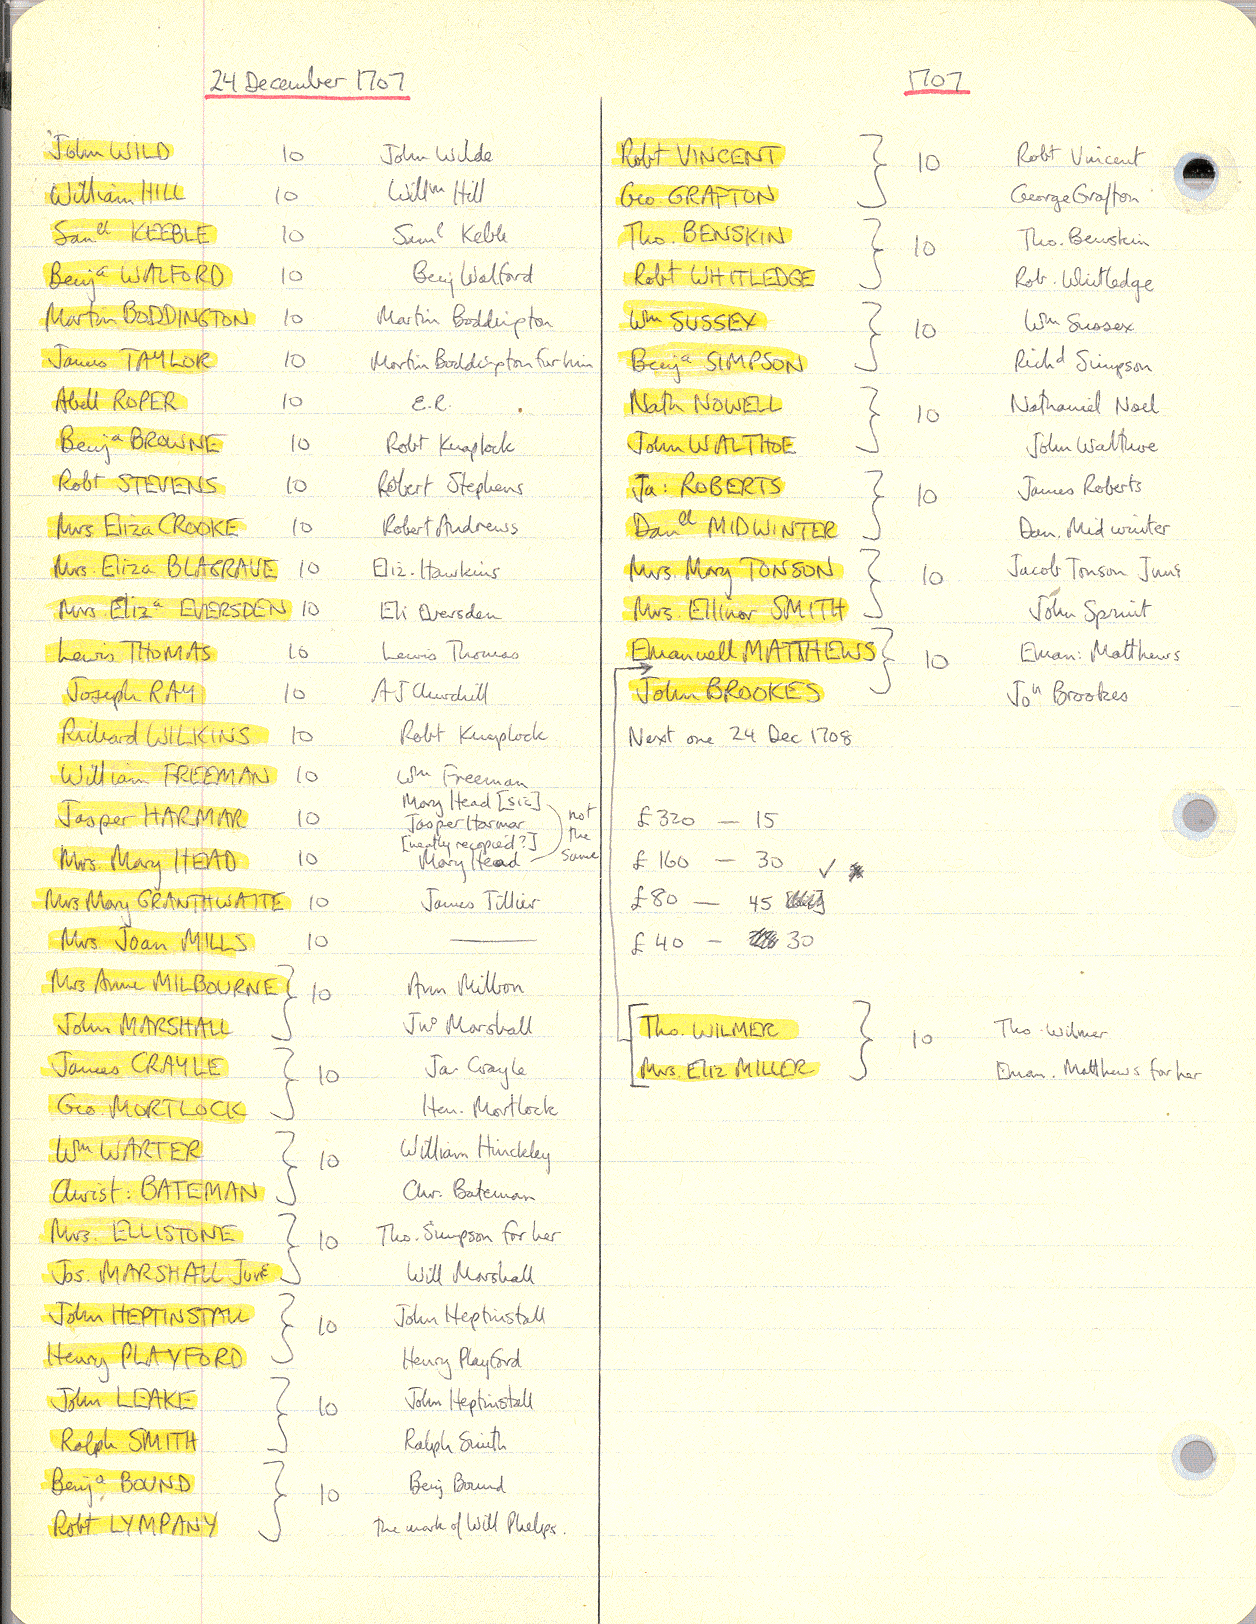 24 December 1707
John WILD 10 John Wilde
William HILL 10 Willm Hill
Samll KEEBLE 10 Saml Keble
Benja WALFORD 10 Benj Walford
Martin BODDINGTON 10 Martin Boddington
James TAYLOR 10 Martin Boddington for him
Abell ROPER 10 E.R.
Benja BROWNE 10 Robt Knaplock
Robt STEVENS 10 Robert Stephens
Mrs Eliza CROOKE 10 Robert Andrews
Mrs. Eliza BLAGRAVE 10 Eliz. Hawkins
Mrs. Eliza EVERSDEN 10 Eli Eversden
Lewis THOMAS 10 Lewis Thomas
Joseph RAY 10 A J Churchill
Richard WILKINS 10 Robt Knaplock
William FREEMAN 10 Wm Freeman
Mary Head [sic]
Jasper HARMAR 10 Jasper Harmar
not the same
[neatly recopied?]
Mrs. Mary HEAD 10 Mary Head
Mrs Mary GRANTHWAITE 10 James Tillier
Mrs Joan MILLS 10 ———
Mrs Anne MILBOURNE } 10 Ann Milbon
John MARSHALL Jno Marshall
James CRAYLE } 10 Ja. Crayle
Geo. MORTLOCK Hen. Mortlock
Wm WARTER } 10 William Hinckley
Christ: BATEMAN Chr. Bateman
Mrs. ELLISTONE } 10 Tho. Simpson for her
Jos. MARSHALL Junr Will Marshall
John HEPTINSTALL } 10 John Heptinstall
Henry PLAYFORD Henry Playford
John LEAKE } 10 John Heptinstall
Ralph SMITH Ralph Smith
Benja BOUND } 10 Benj Bound
Robt LYMPANY the mark of Will Phelps.
1707
Robt VINCENT } 10 Robt Vincent
Geo. GRAFTON George Grafton
Tho. BENSKIN } 10 Tho. Benskin
Robt WHITLEDGE Rob. Whitledge
Wm SUSSEX } 10 Wm Sussex
Benja SIMPSON Richd Simpson
Nath NOWELL } 10 Nathaniel Noel
John WALTHOE John Walthoe
Ja: ROBERTS } 10 James Roberts
Danll MIDWINTER Dan. Midwinter
Mrs. Mary TONSON } 10 Jacob Tonson Junr
Mrs. Ellinor SMITH John Sprint
Emanuell MATTHEWS } 10 Eman: Matthews
John BROOKES Jon Brookes
Next one 24 Dec 1708
£320 — 15
£160 — 30 ✓
£80 — 45
£40 — 30
[Tho. WILMER } 10 Tho. Wilmer
Mrs. Eliz MILLER Eman. Matthews for her